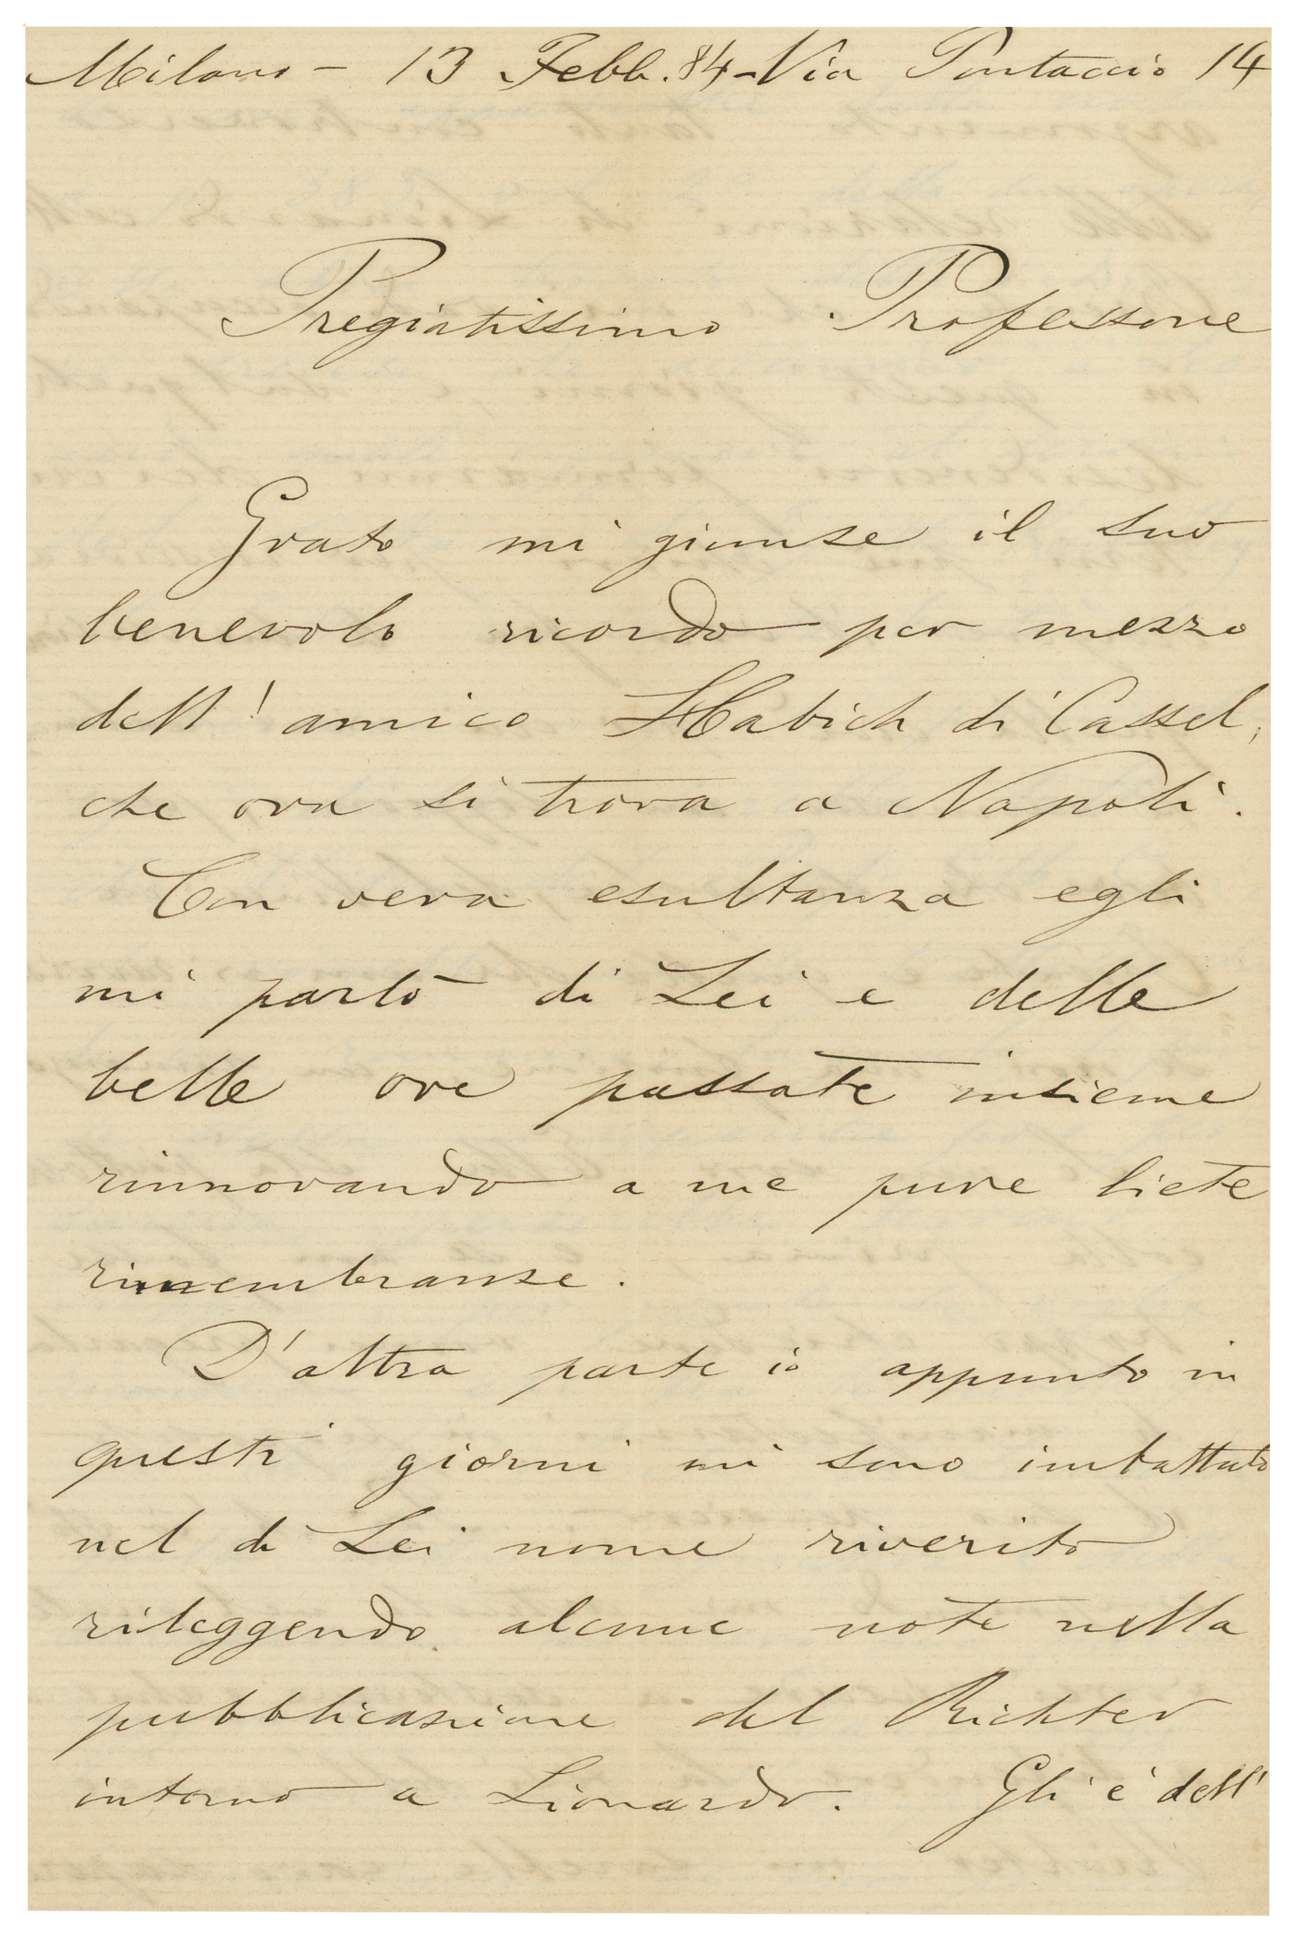 Milano – 13 Febb. 84 – Via Pontaccio 14
Pregiatissimo Professore
Grato mi giunse il suo
benevolo ricordo per mezzo
dell' amico Habich di Cassel,
che ora si trova a Napoli.
Con vera esultanza egli
mi parlò di Lei e delle
belle ore passate insieme
rinnovando a me pure liete
rimembranze.
D'altra parte io appunto in
questi giorni mi sono imbattuto
nel di Lei nome riverito
rileggendo alcune note nella
pubblicazione del Richter
intorno a Lionardo. Gli è dell'